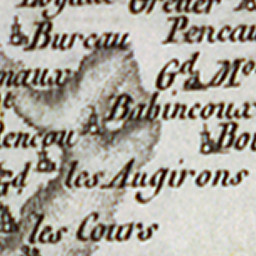 Bureau
Pencau
maux
G.d Mo
Babincoux
encou
Bou
G.d les Augirons
les Cours